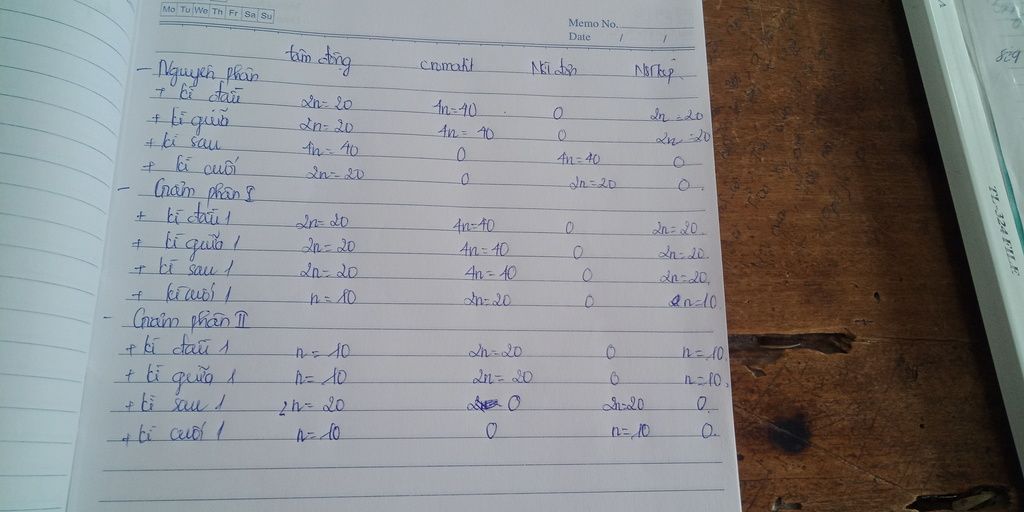 Mo Tu We Th Fr Sa Su
Memo No.
Date / /
tâm động cromatit NST đơn NST kép
- Nguyên phân
+ kì đầu 2n=20 4n=40 0 2n=20
+ kì giữa 2n=20 4n=40 0 2n=20
+ kì sau 4n=40 0 4n=40 0
+ kì cuối 2n=20 0 2n=20 0.
- Giảm phân I
+ kì đầu 1 2n=20 4n=40 0 2n=20.
+ kì giữa 1 2n=20 4n=40 0 2n=20.
+ kì sau 1 2n=20 4n=40 0 2n=20.
+ kì cuối 1 n=10 2n=20 0 n=10.
- Giảm phân II
+ kì đầu 1 n=10 2n=20 0 n=10.
+ kì giữa 1 n=10 2n=20 0 n=10.
+ kì sau 1 2n=20 0 2n=20 0.
+ kì cuối 1 n=10 0 n=10 0.
TL-324 FILE
829